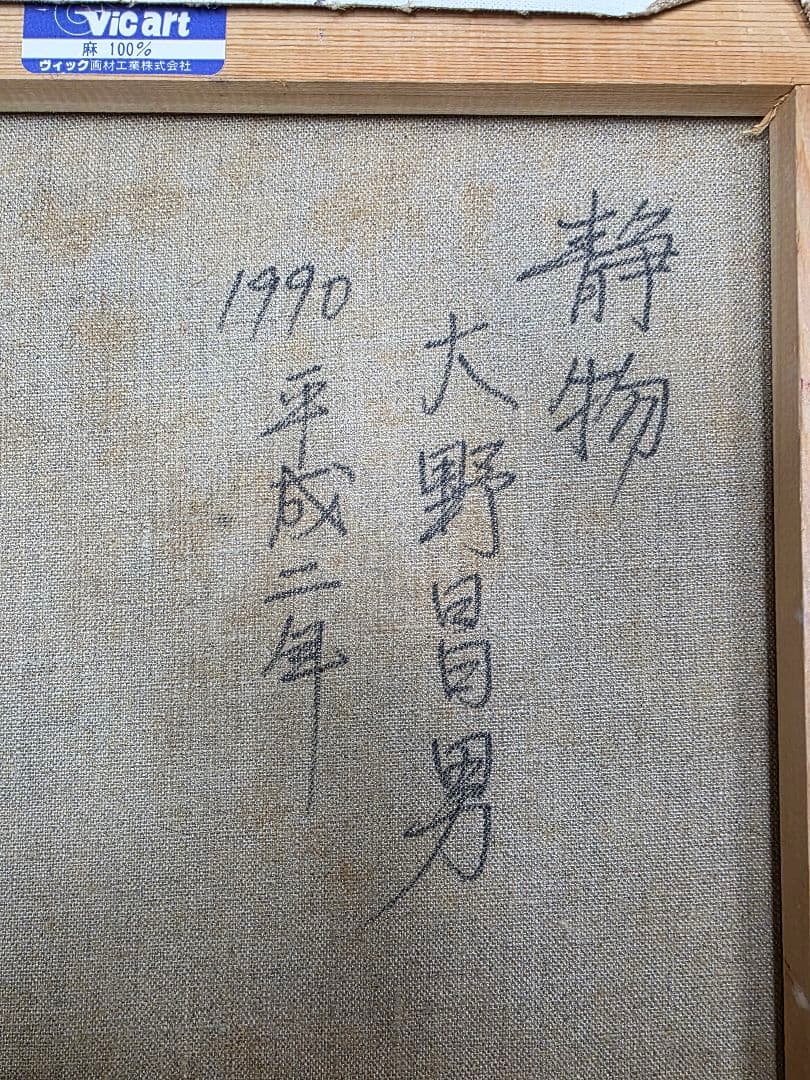 Vic art
麻 100%
ヴィック画材工業株式会社
静物
大野昌男
1990
平成二年